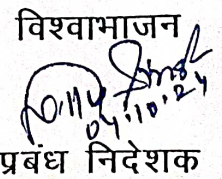 विश्वाभाजन
04.10.24
प्रबंध निदेशक